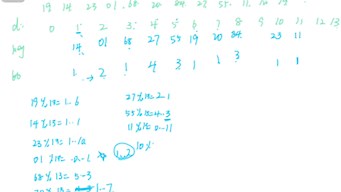 19 14 23 01 68 20 84 27 55 11
0 1 2 3 4 5 6 7 8 9 10 11 12 13
key 14 01 68 27 55 19 20 84 23 11
1 → 2 1 4 3 1 1 3 1 1
19%13=1...6 27%13=2...1
14%13=1...1 55%13=4...3
23%13=1...10 11%13=0...11
01%13=0...1 10%
68%13=5...3
1...7